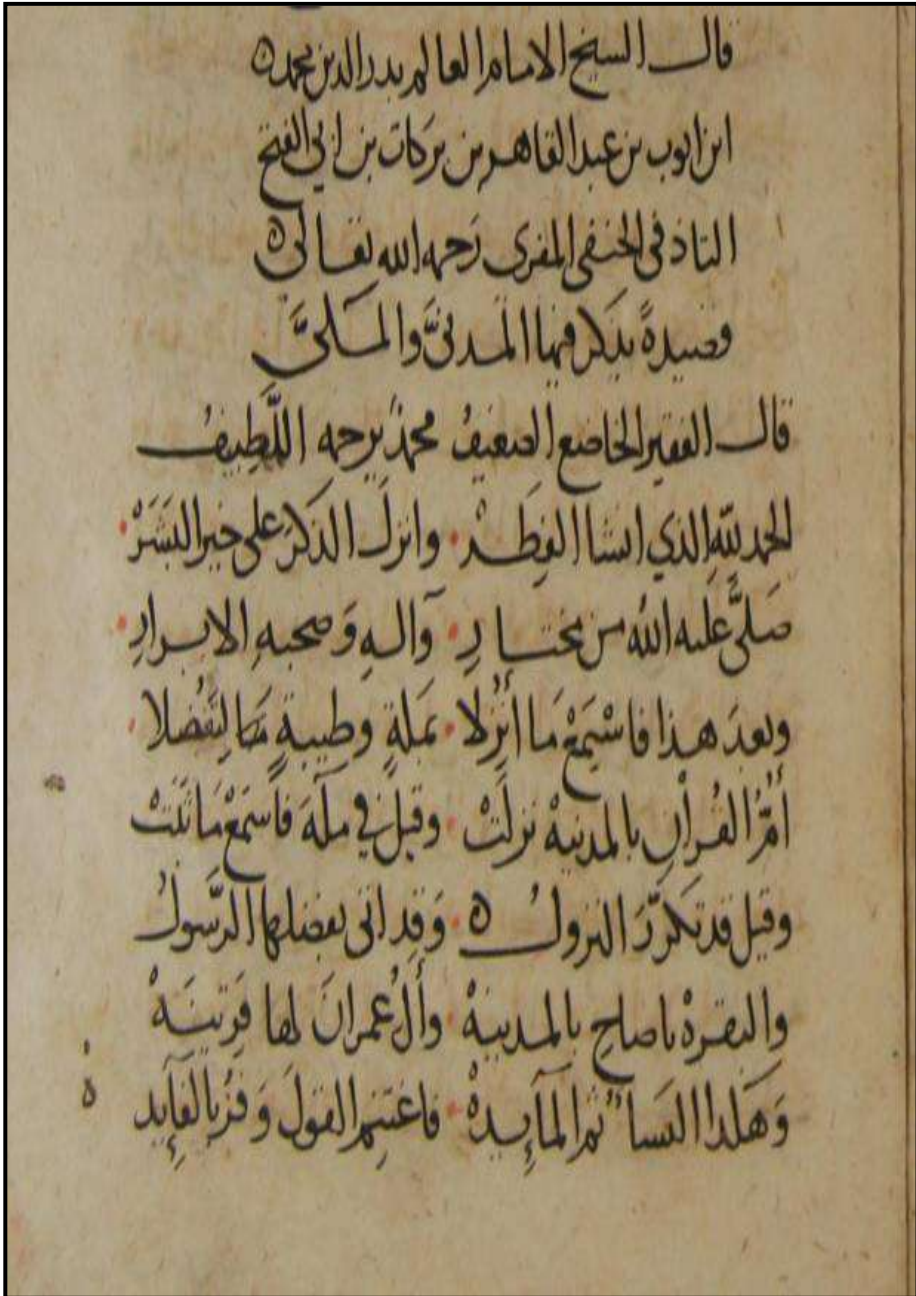 قال الشيخ الامام العالم بدر الدين محمد ه
ابن ايوب بن عبد القاهر بن بركات بن ابي الفتح
التاذفي الحنفي المقرى رَحمه الله تعالى ه
قصيدةً يذكر فيها المدنيَّ والمكيَّ
قال الفقير الخاضع الضعيفُ محمدٌ يرحمه اللَّطِيفُ
الحمد للهِ الذي انشا الفِطَرْ • وانزلَ الذكرَ على خير البَشَرْ •
صَلىَّ عليه الله من مختارِ • وآلهِ وَصحبهِ الابرارِ •
وبعدَ هذا فاسْتَمِعْ مَا أُنْزِلا • بمكةٍ وطِيبةٍ مَا لِتَفْضُلا •
أمُّ القُرآنِ بالمدينهْ نزلَتْ • وقيل في مكةَ فاسمَعْ مَا ثَبَتْ
وقيل قد تكررَّ النزولُ ه • وَقد اتى بفضلها الرَّسولُ
والبقرهْ ياصاحِ بالمدينهْ • وأَلُ عمرانَ لها قَرِينَهْ
وَهكذا النسا ثم المآيدهْ • فاغتنِم القولَ وَفزْ بالفآيِده